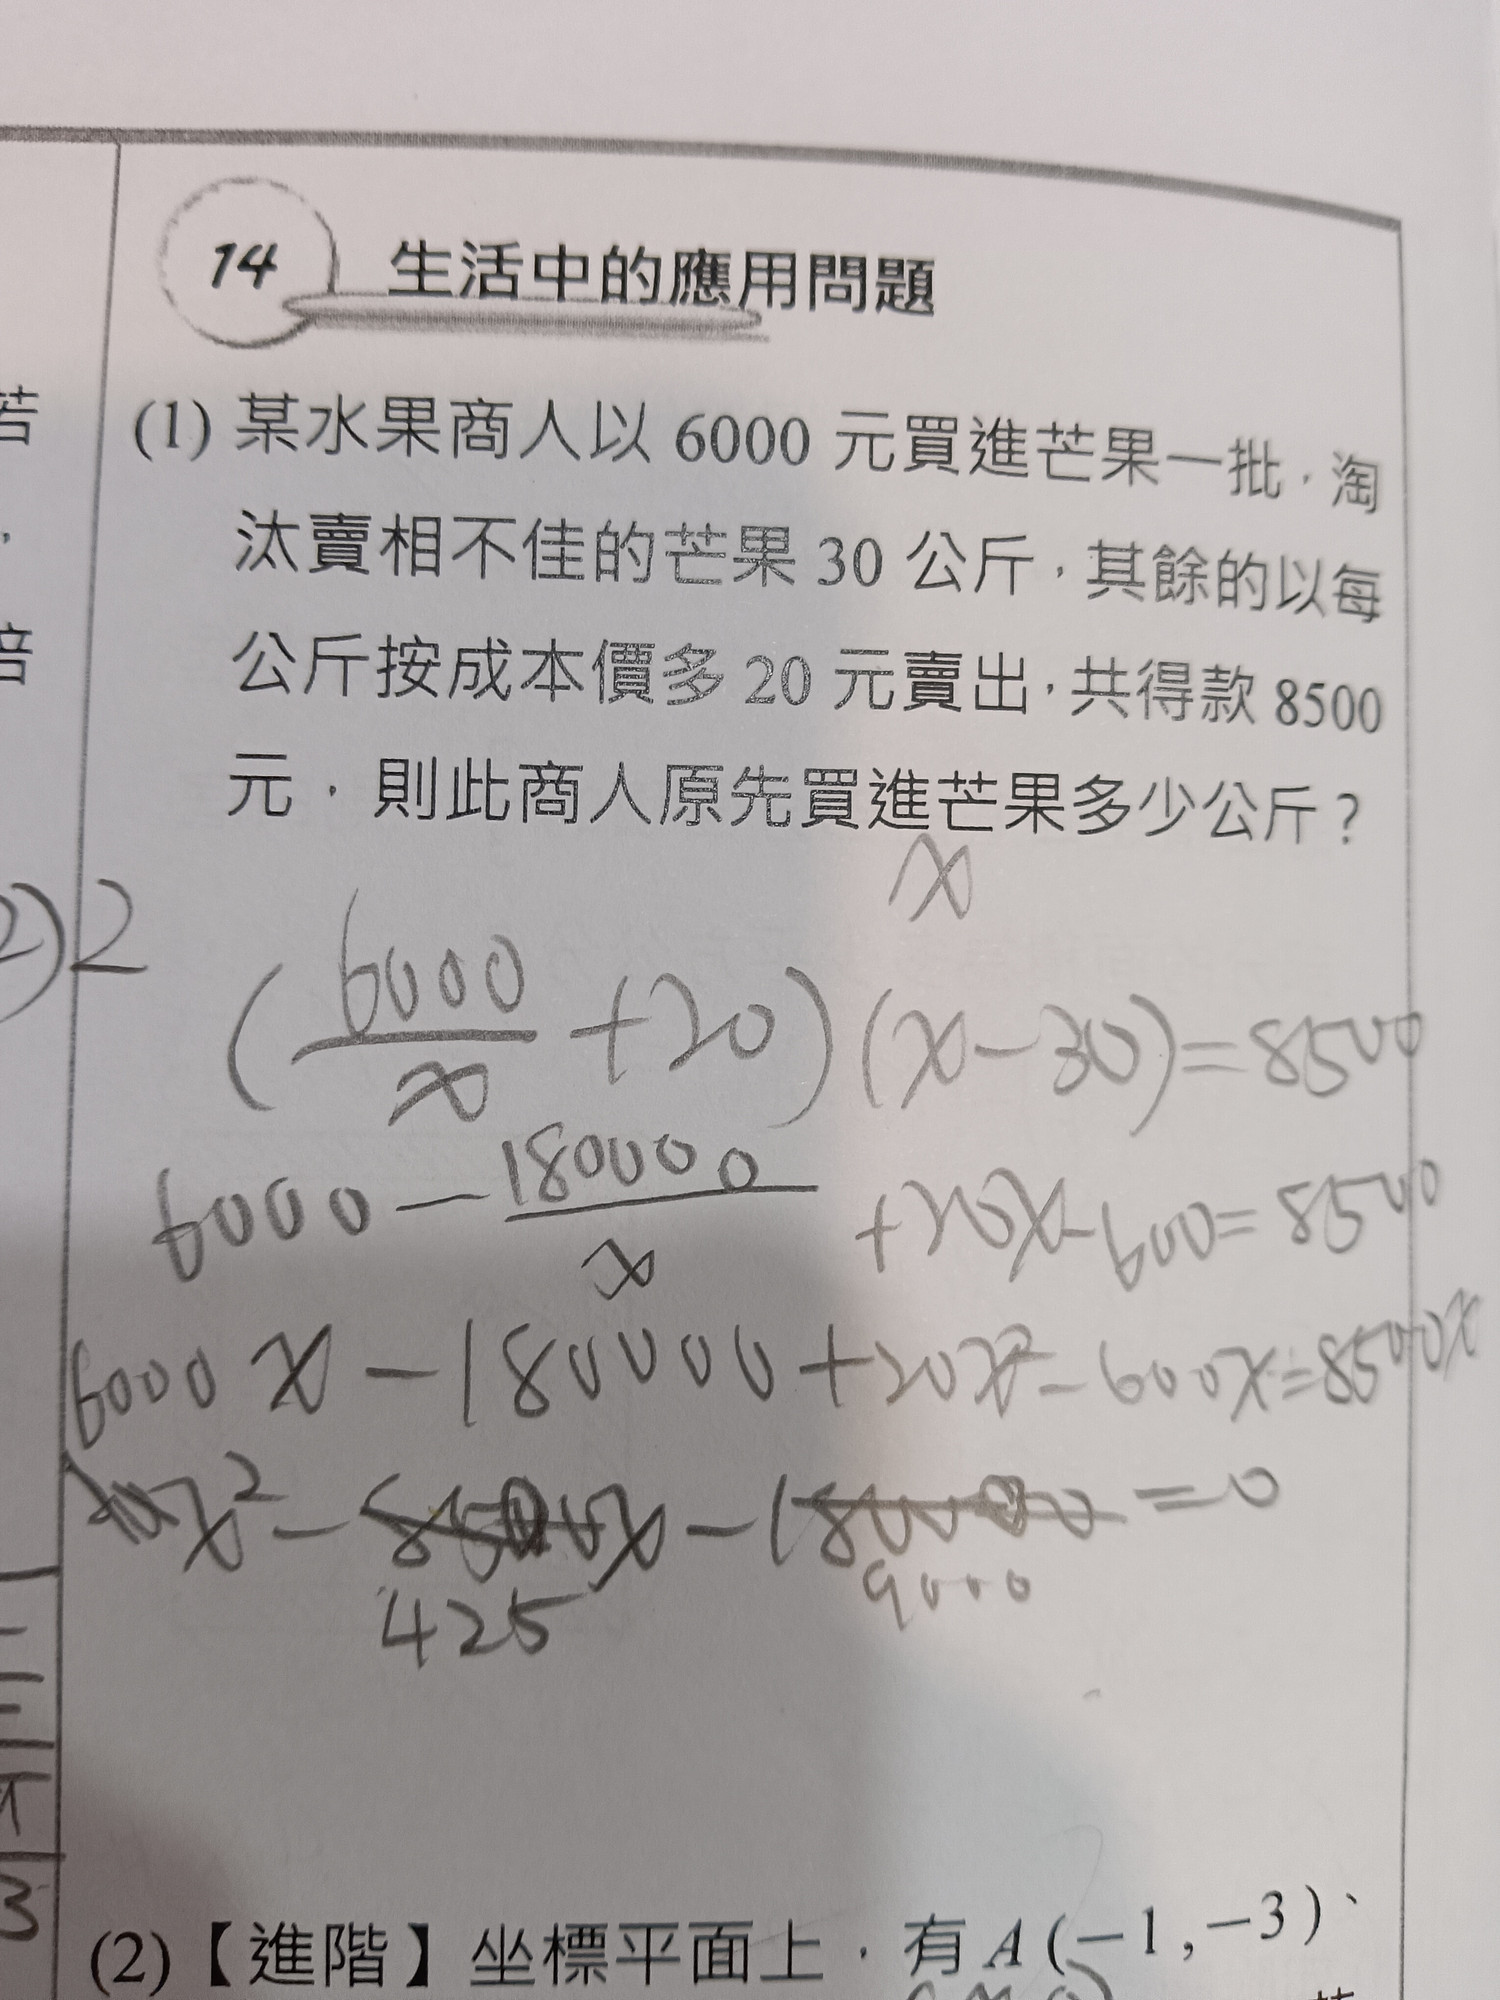 14 生活中的應用問題
若
(1) 某水果商人以 6000 元買進芒果一批，淘
，
汰賣相不佳的芒果 30 公斤，其餘的以每
倍
公斤按成本價多 20 元賣出，共得款 8500
元，則此商人原先買進芒果多少公斤？
x
2) 2
(6000/x +20)(x-30)=8500
6000 - 180000/x +20x-600=8500
6000x-180000+20x²-600x=8500x
x²- x- =0
425 9000
3
(2)【進階】坐標平面上，有 A(-1,-3)、